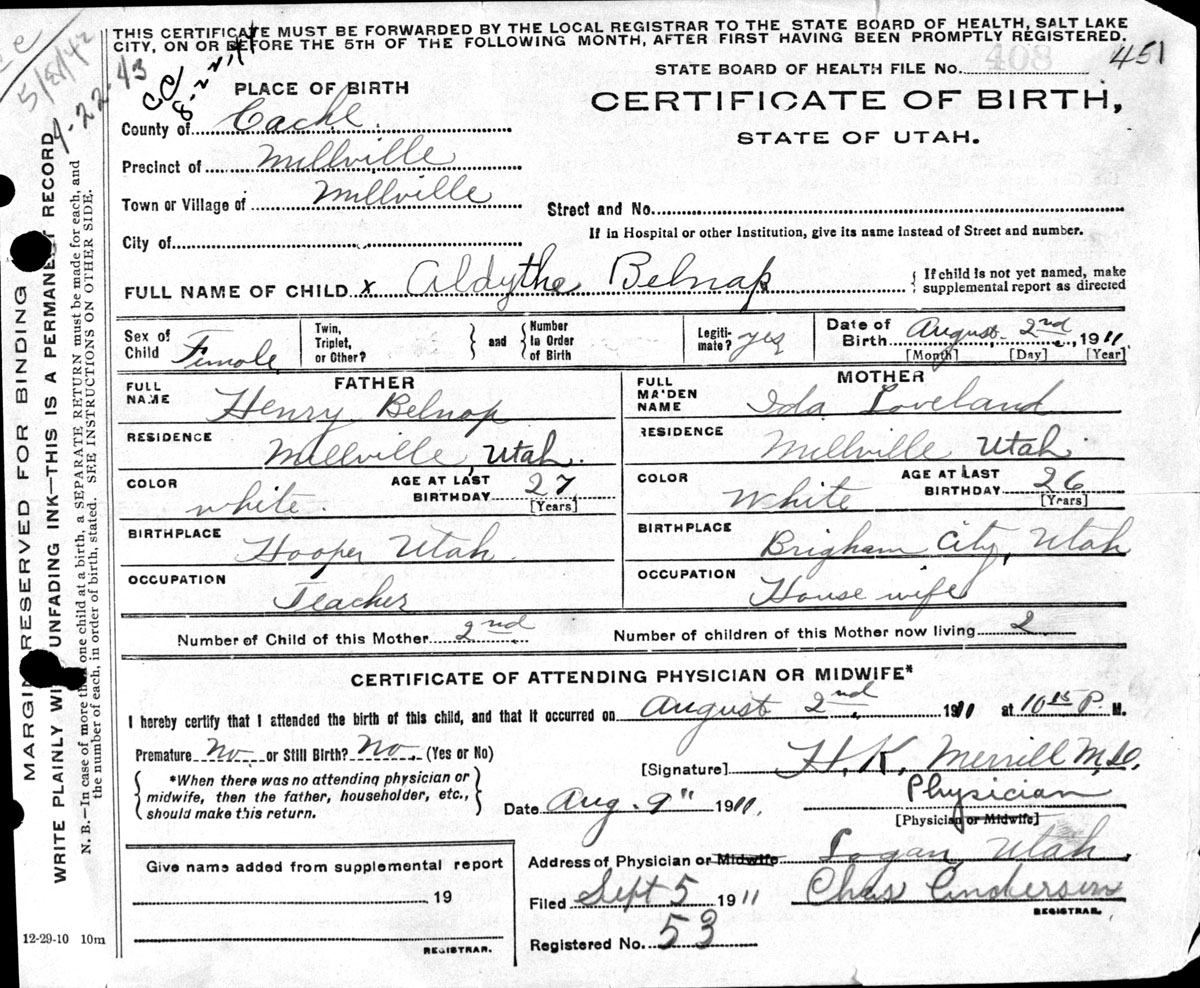 THIS CERTIFICATE MUST BE FORWARDED BY THE LOCAL REGISTRAR TO THE STATE BOARD OF HEALTH, SALT LAKE
CITY, ON OR BEFORE THE 5TH OF THE FOLLOWING MONTH, AFTER FIRST HAVING BEEN PROMPTLY REGISTERED.
STATE BOARD OF HEALTH FILE No. 408 451
PLACE OF BIRTH
CERTIFICATE OF BIRTH,
STATE OF UTAH.
County of Cache
Precinct of Millville
Town or Village of Millville
Street and No.
City of
If in Hospital or other Institution, give its name instead of Street and number.
FULL NAME OF CHILD x Aldythe Belnap
{ If child is not yet named, make
supplemental report as directed
Sex of Child Female
Twin, Triplet, or Other? } and { Number in Order of Birth
Legiti-mate? yes
Date of Birth August 2nd, 1911
[Month] [Day] [Year]
FATHER
FULL NAME Henry Belnap
RESIDENCE Millville, Utah.
COLOR white.
AGE AT LAST BIRTHDAY 27 [Years]
BIRTHPLACE Hooper Utah
OCCUPATION Teacher
MOTHER
FULL MAIDEN NAME Ida Loveland
RESIDENCE Millville Utah
COLOR White
AGE AT LAST BIRTHDAY 26 [Years]
BIRTHPLACE Brigham City, Utah
OCCUPATION House wife
Number of Child of this Mother 2nd
Number of children of this Mother now living 2
CERTIFICATE OF ATTENDING PHYSICIAN OR MIDWIFE*
I hereby certify that I attended the birth of this child, and that it occurred on August 2nd, 1911 at 10 15 P. M.
Premature No or Still Birth? No. (Yes or No)
{ *When there was no attending physician or
midwife, then the father, householder, etc.,
should make this return. }
[Signature] H. K. Merrill M.D.
Physician
Date Aug. 9" 1911.
[Physician or Midwife]
Give name added from supplemental report
19
REGISTRAR.
Address of Physician or Midwife Logan, Utah.
Filed Sept 5 1911 Chas Anderson
REGISTRAR.
Registered No. 53
12-29-10 10m
MARGIN RESERVED FOR BINDING
WRITE PLAINLY WITH UNFADING INK—THIS IS A PERMANENT RECORD
N. B.—In case of more than one child at a birth, a SEPARATE RETURN must be made for each, and
the number of each, in order of birth, stated. SEE INSTRUCTIONS ON OTHER SIDE.
5/8/42